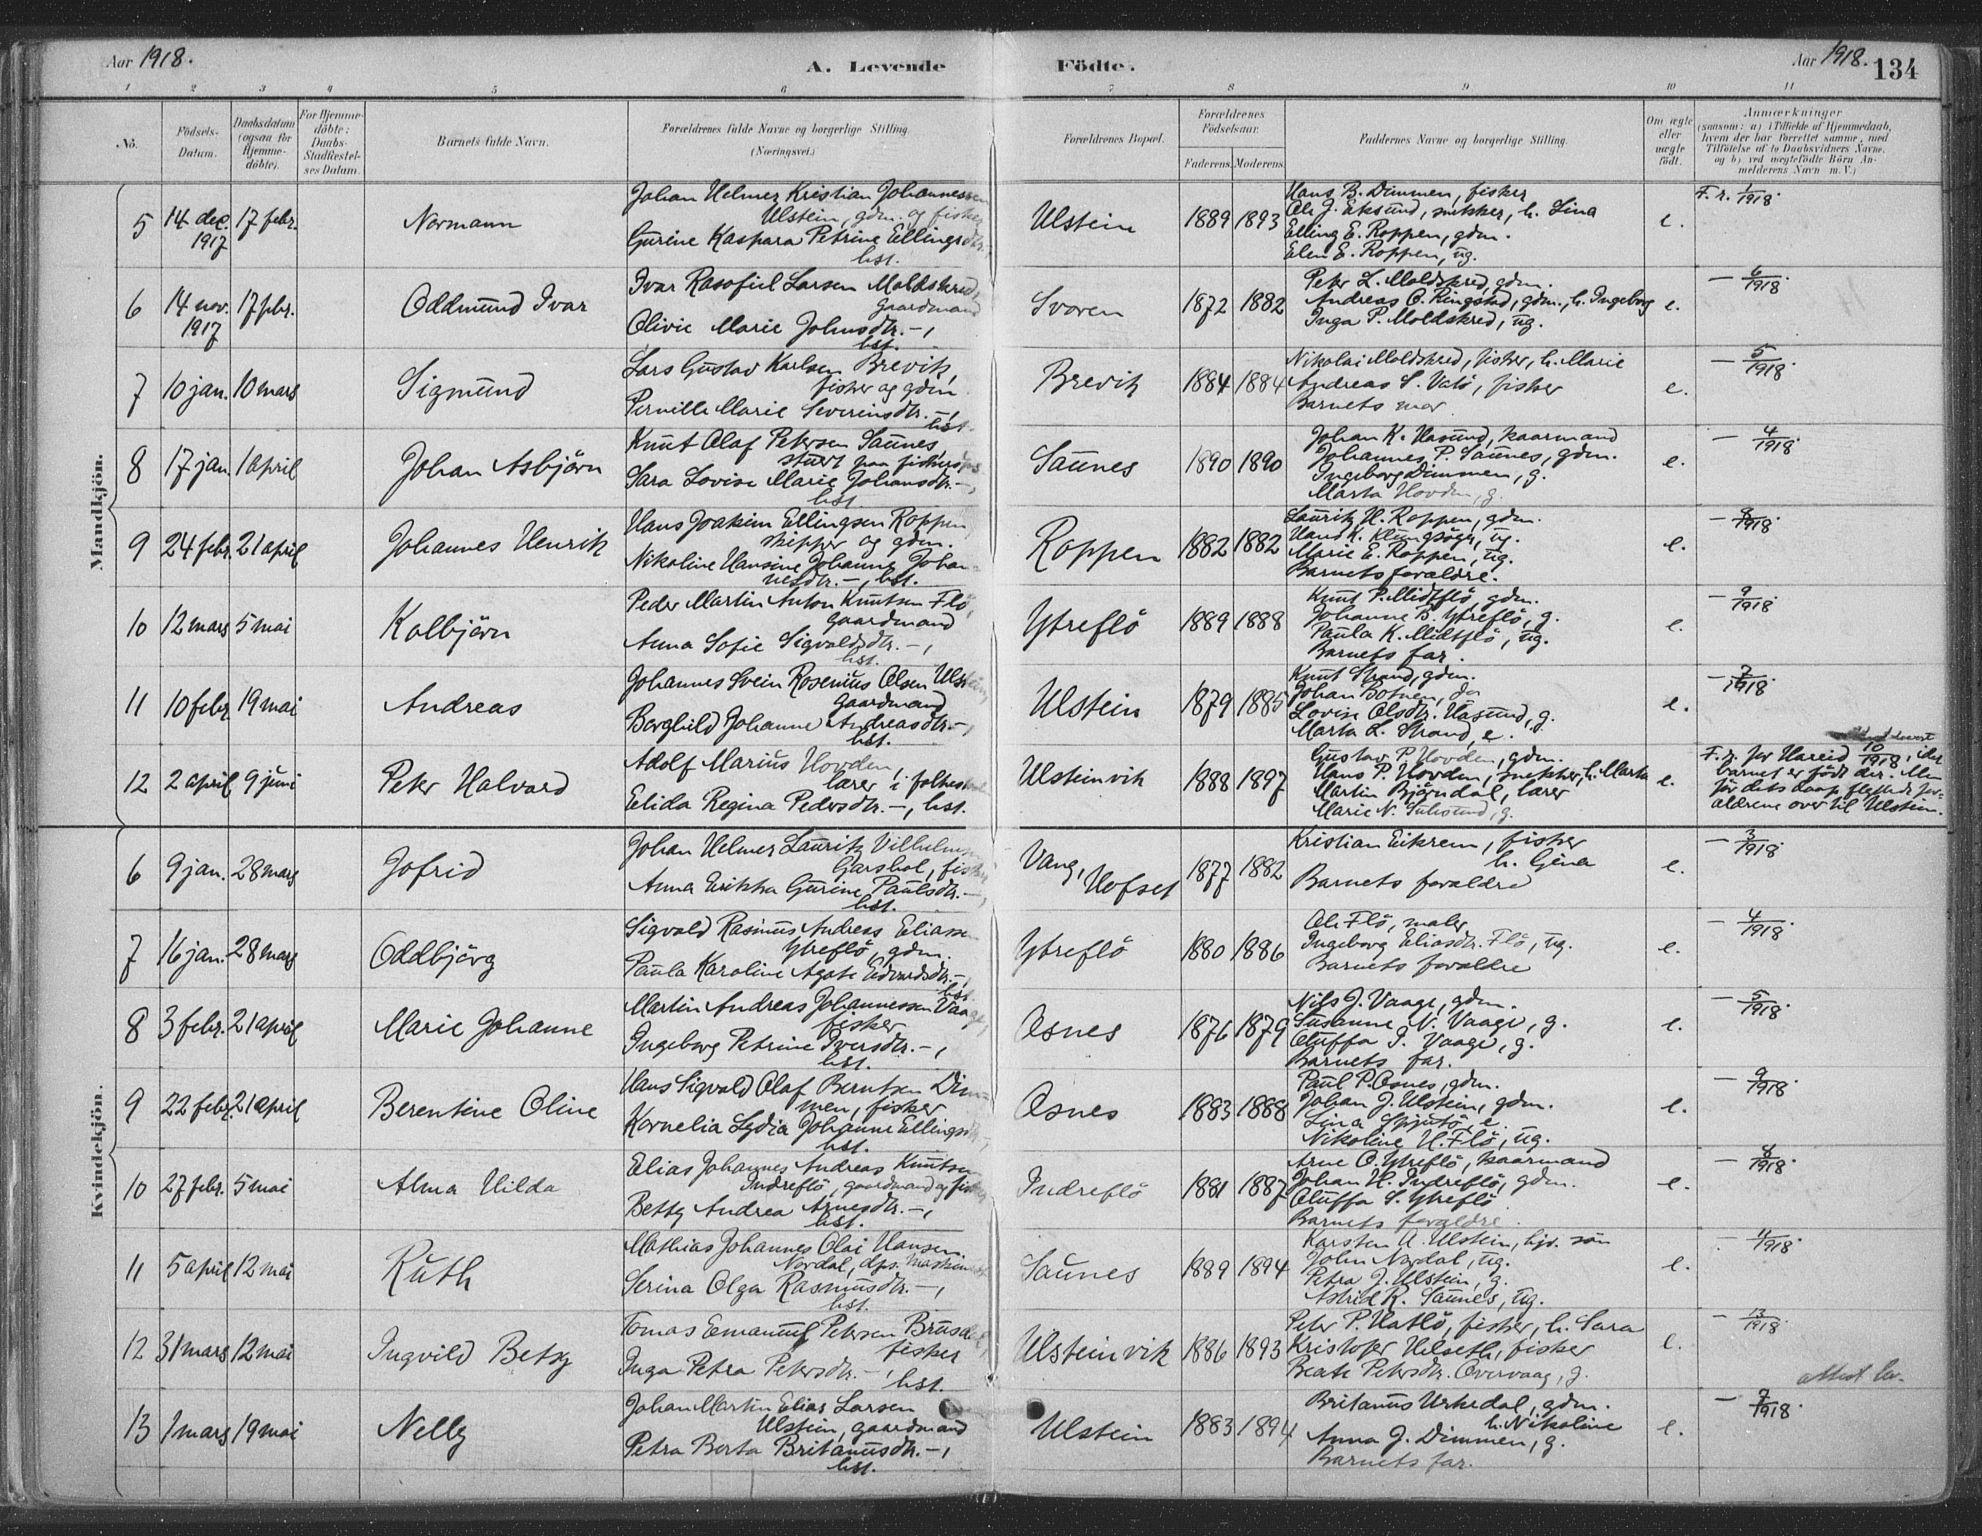 Aar 1918. A. Levende Födte. Aar 1918. 134
1 2 3 4 5 6 7 8 9 10 11
No. Födsels-Datum. Daabsdatum (ogsaa for Hjemme-döbte). For Hjemme-döbte: Daabs-Stadfæstel-ses Datum. Barnets fulde Navn. Forældrenes fulde Navne og borgerlige Stilling. (Næringsvei.) Forældrenes Bopæl. Forældrenes Födselsaar. Faderens. Moderens. Faddernes Navne og borgerlige Stilling. Om ægte eller uægte födt. Anmærkninger (saasom: a) i Tilfælde af Hjemmedaab, hvem der har forrettet samme, med Tilföielse af to Daabsvidners Navne, og b) ved uægtefödte Börn Anmelderens Navn m. V.)
Mandkjön.
5 14 dec. 1917 17 febr. Normann
Johan Helmer Kristian Johannessen
Ulstein, gdm. og fisker
Gurine Kaspara Petrine Ellingsdtr.
hst.
Ulstein 1889 1893
Hans B. Dimmen, fisker
Ole J. Eksund, snikker, h. Lina
Elling E. Roppen, gdm.
Elen E. Roppen, ug.
e. F. r. 1/1918.
6 14 nov. 1917 17 febr. Oddmund Ivar
Ivar Rasofiel Larsen Moldskred,
gaardmand
Olivie Marie Johnsdtr. –,
hst.
Svoren 1872 1882
Peter L. Moldskred, gdm.
Andreas O. Ringstad, gdm., h. Ingeborg
Inga P. Moldskred, ug.
e. – 6/1918.
7 10 jan. 10 mars Sigmund
Lars Gustav Karlsen Brevik,
fisker og gdm.
Pernille Marie Severinsdtr. –,
hst.
Brevik 1884 1884
Nikolai Moldskred, fisker, h. Marie
Andreas S. Vatö, fisker
Barnets mor.
e. – 5/1918.
8 17 jan. 1 april Johan Asbjörn
Knut Olaf Petersen Saunes,
stuert paa
Sara Lovise Marie Johansdtr. –,
hst.
Saunes 1890 1890
Johan K. Hasund, kaarmand
Johannes P. Saunes, gdm.
Ingeborg Dimmen, g.
Marta Hovden, g.
e. – 4/1918.
9 24 febr. 21 april Johannes Henrik
Hans Joakim Ellingsen Roppen
skipper og gdm.
Nikoline Hansine Johanne Johan-
nesdtr. –, hst.
Roppen 1882 1882
Lauritz H. Roppen, gdm.
Hans K. Klungsöyr, ug.
Marie E. Roppen, ug.
Barnets forældre.
e. – 8/1918.
10 12 mars 5 mai Kolbjörn
Peder Martin Anton Knutsen Flö,
gaardmand
Anna Sofie Sigvaldsdtr. –,
hst.
Ytreflö 1889 1888
Knut P. Midtflö, gdm.
Johanne B. Ytreflö, g.
Paula K. Midtflö, ug.
Barnets far.
e. – 9/1918.
11 10 febr. 19 mai Andreas
Johannes Svein Rosenius Olsen Ulstein,
gaardmand
Borghild Johanne Andreasdtr. –,
hst.
Ulstein 1879 1885
Knut Strand, gdm.
Johan Botnen, do
Lovise Olsdtr. Hasund, g.
Marta L. Strand, e.
e. – 7/1918.
12 2 april 9 juni Peter Halvard
Adolf Marius Hovden,
lærer i folkeskolen
Elida Regina Pedersdtr. –, hst.
Ulsteinvik 1888 1897
Gustav P. Hovden, gdm.
Hans P. Hovden, snekker, h. Marta
Martin Björndal, lærer
Marie N. Sulesund, g.
e. F. r. for Hareid 10/1918, idet
barnet er födt der. Men
för dets daap flyttede for-
ældrene over til Ulstein.
Kvindekjön.
6 9 jan. 28 mars Jofrid
Johan Helmer Lauritz Vilhelmsen
Garshol, fisker
Anna Erikka Gurine Paulsdtr. –,
hst.
Vang, Hofset 1877 1882
Kristian Eikrem, fisker
h. Gina
Barnets forældre
e. – 3/1918.
7 16 jan. 28 mars Oddbjörg
Sigvald Rasmus Andreas Eliassen
Ytreflö, gdm.
Paula Karoline Agate Edvardsdtr. –,
hst.
Ytreflö 1880 1886
Ole Flö, maler
Ingeborg Eliasdtr. Flö, ug.
Barnets forældre
e. – 4/1918.
8 3 febr. 21 april Marie Johanne
Martin Andreas Johannessen Vaage,
fisker
Ingeborg Petrine Iversdtr. –,
hst.
Osnes 1876 1879
Nils J. Vaage, gdm.
Susanne N. Vaage, g.
Oluffa I. Vaage, g.
Barnets far.
e. – 5/1918.
9 22 febr. 21 april Berentine Oline
Hans Sigvald Olaf Berntsen Dim-
men, fisker
Kornelia Lydia Johanne Ellingsdtr. –,
hst.
Osnes 1883 1888
Paul P. Osnes, gdm.
Johan J. Ulstein, gdm.
Lina Spjutö, e.
Nikoline H. Flö, ug.
e. – 9/1918.
10 27 febr. 5 mai Alma Hilda
Elias Johannes Andreas Knutsen
Indreflö, gaardmand og fisker
Betsy Andrea Arnesdtr. –,
hst.
Indreflö 1881 1887
Arne O. Ytreflö, kaarmand
Johan H. Indreflö, gdm.
Oluffa S. Ytreflö
Barnets forældre.
e. – 8/1918.
11 5 april 12 mai Ruth
Mathias Johannes Olai Hansen
Nordal, dps. maskinist
Serina Olga Rasmusdtr. –,
hst.
Saunes 1889 1894
Karsten A. Ulstein, hjv. sön
John Nordal, ug.
Petra J. Ulstein, g.
Astrid R. Saunes, ug.
e. – 4/1918.
12 31 mars 12 mai Ingvild Betsy
Tomas Emanuel Petersen Brusdal,
fisker
Inga Petra Petersdtr. –,
hst.
Ulsteinvik 1886 1893
Peter P. Hatlö, fisker, h. Sara
Kristofer Helseth, fisker
Beate Petersdtr. Overvaag, g.
e. – 13/1918.
attest lev.
13 1 mars 19 mai Nelly
Johan Martin Elias Larsen
Ulstein, gaardmand
Petra Berta Britanusdtr. –,
hst.
Ulstein 1883 1894
Britanus Urkedal, gdm.
h. Nikoline
Anna J. Dimmen, g.
Barnets far.
e. – 7/1918.